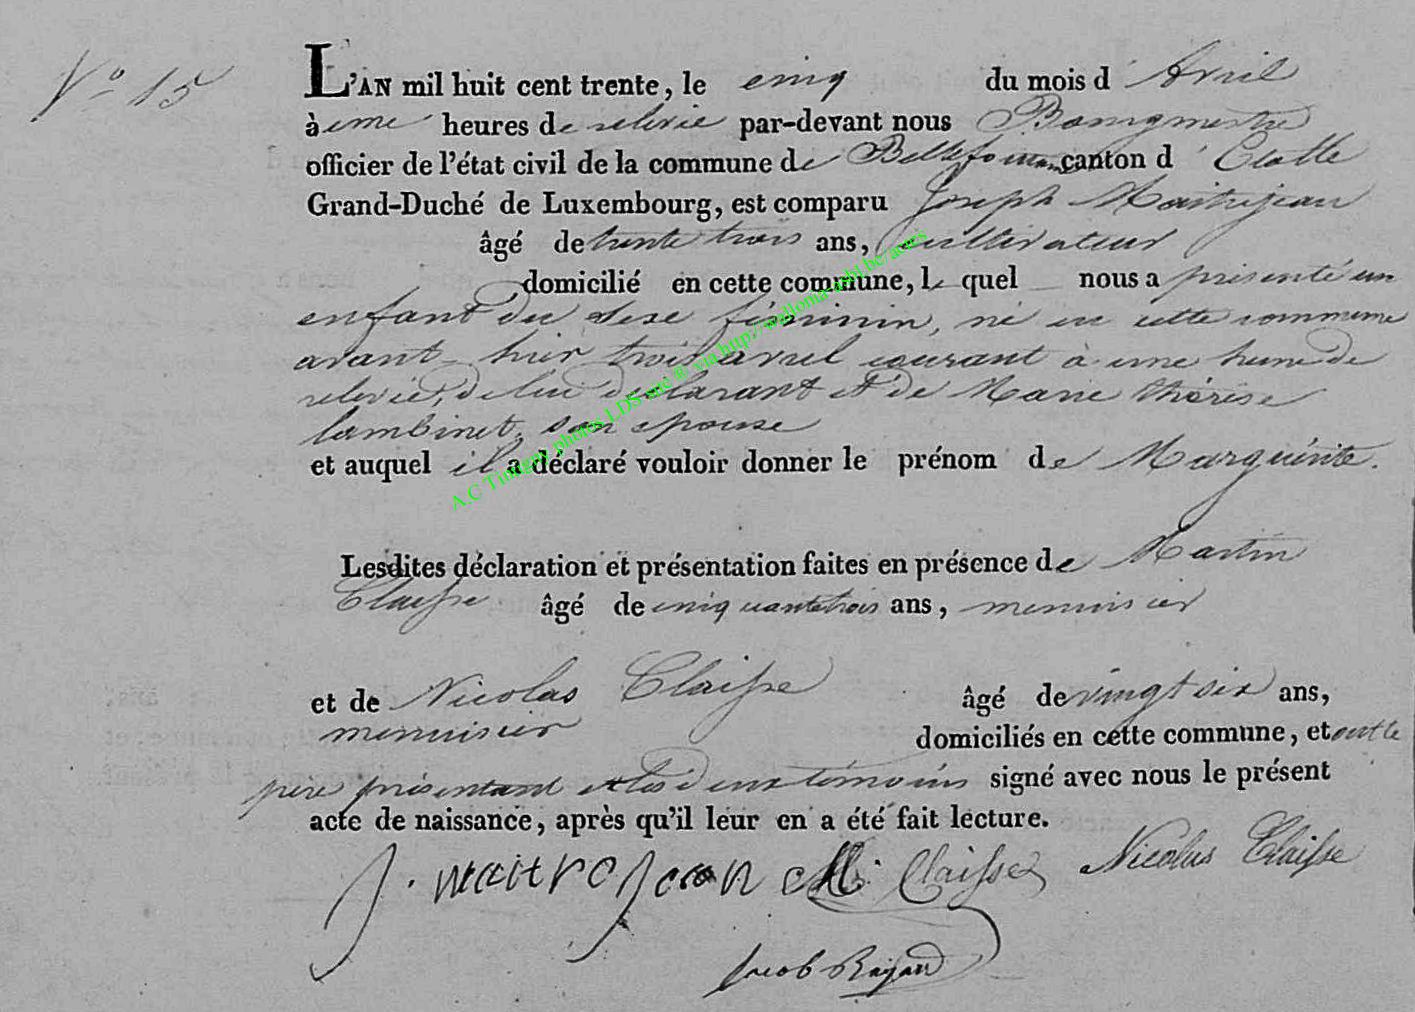 N° 15
L'AN mil huit cent trente, le cinq du mois d'Avril
à une heures de relevée par-devant nous Bourgmestre
officier de l'état civil de la commune de Bellefontaine canton d'Etalle
Grand-Duché de Luxembourg, est comparu Joseph Maitrejean
âgé de trente trois ans, cultivateur
domicilié en cette commune, le quel nous a présenté un
enfant du sexe féminin, né en cette commune
avant-hier trois avril courant à une heure de
relevée, de lui déclarant et de Marie thérèse
lambinet, son épouse
et auquel il a déclaré vouloir donner le prénom de Marguérite.
Lesdites déclaration et présentation faites en présence de Martin
Claisse âgé de cinquante trois ans, menuisier
et de Nicolas Claisse âgé de vingt six ans,
menuisier domiciliés en cette commune, et ont le
père présentant et les deux témoins signé avec nous le présent
acte de naissance, après qu'il leur en a été fait lecture.
J. maitrejean M. Claisse Nicolas Claisse
Jacob
A.C Tintigny photos LDS mic ® via http://wallonia-asbl.be/actes